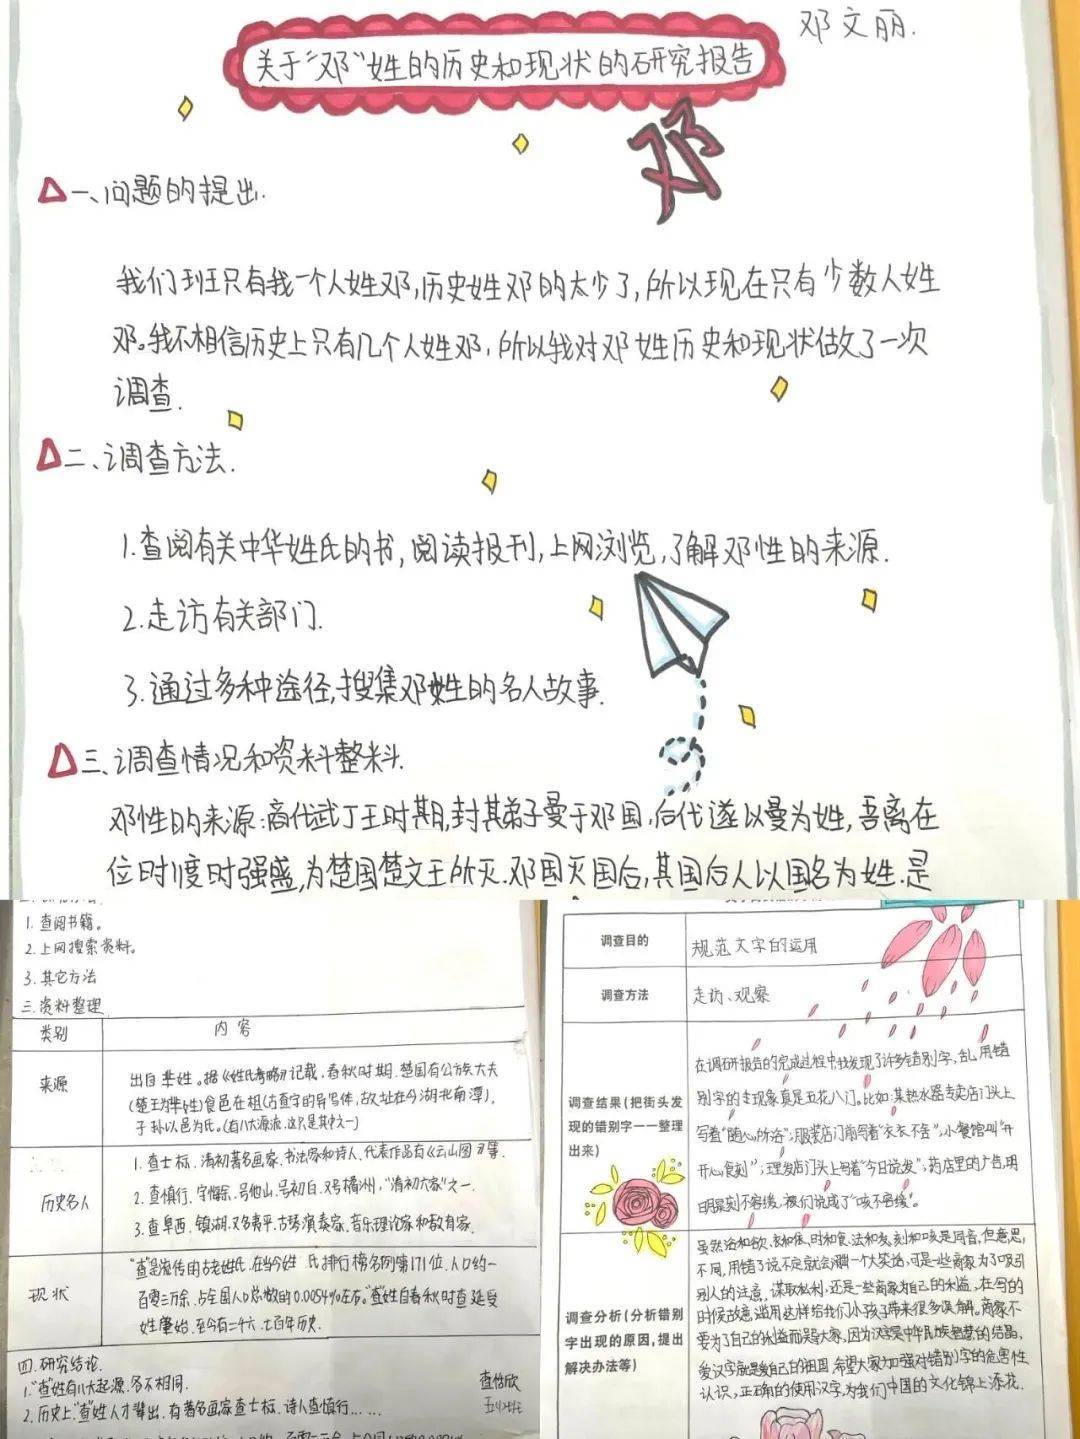 邓文丽.
关于“邓”姓的历史和现状的研究报告
邓
一、问题的提出.
我们班只有我一个人姓邓,历史姓邓的太少了,所以现在只有少数人姓
邓。我不相信历史上只有几个人姓邓,所以我对邓姓历史和现状做了一次
调查.
二、调查方法.
1.查阅有关中华姓氏的书,阅读报刊,上网浏览,了解邓性的来源.
2.走访有关部门.
3.通过多种途径,搜集邓姓的名人故事.
三、调查情况和资料整料.
邓性的来源:商代武丁王时期,封其弟子曼于邓国,后代遂以曼为姓,吾离在
位时度时强盛,为楚国楚文王所灭.邓国灭国后,其国后人以国名为姓.是
1.查阅书籍。
2.上网搜索资料。
3.其它方法
三.资料整理
类别 内容
来源
出自芈姓。据《姓氏考略》记载,春秋时期,楚国有公族大夫
(楚王为芈姓)食邑在柤(古查字的异写体,故址在今湖北南漳),
子孙以邑为氏。(有八大源流,这只是其中一)
历史名人
1.查士标,清初著名画家、书法家和诗人,代表作品有《云山图》等.
2.查慎行,字悔余,号他山,号初白,又号橘洲,“清初六家”之一.
3.查阜西,镇湖,又名夷平,古琴演奏家,音乐理论家和教育家.
现状
“查”是流传的古老姓氏,在当今姓氏排行榜名列第171位,人口约一
百零三万余,占全国人口总数的0.0054%左右。“查”姓自春秋时查延受
姓肇始,至今有二千六、七百年历史.
四.研究结论.
1.“查”姓有八大起源,各不相同.
2.历史上“查”姓人才辈出,有著名画家查士标、诗人查慎行……
查怡欣
调查目的 规范文字的运用
调查方法 走访、观察
调查结果(把街头发
现的错别字——整理
出来)
在调研报告的完成过程中,我发现了许多错别字,乱用错
别字的主现象真是五花八门。比如:某热水器专卖店门头上
写着“随心所浴”;服装店门前写着“衣衣不舍”;小餐馆叫“开
开心食刻”;理发店门头上写着“今日说发”;药店里的广告,明
明是刻不容缓,被们说成了“咳不容缓”。
调查分析(分析错别
字出现的原因,提出
解决办法等)
虽然浴和欲、衣和依、时和食、法和发、刻和咳是同音,但意思
不同,用错了说不定就会闹一个大笑话,可是一些商家为了吸引
别人的注意,谋取私利,还是一些商家为自己的利益,在写的
时候故意滥用,这样给我们小孩子带来很多误解。商家不
要为了自己的利益而误大家,因为汉字是中华民族智慧的结晶,
爱汉字就是爱自己的祖国,希望大家加强对错别字的危害性
认识,正确的使用汉字,为我们中国的文化锦上添花.